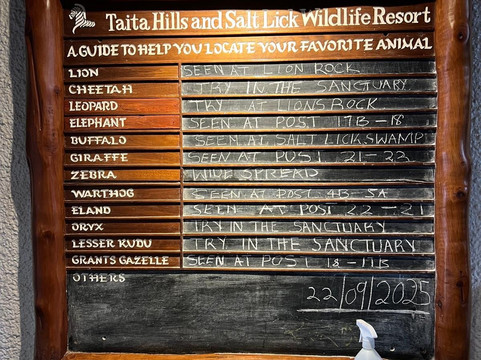 Taita Hills and Salt Lick Wildlife Resort
A GUIDE TO HELP YOU LOCATE YOUR FAVORITE ANIMAL
LION SEEN AT LION ROCK
CHEETAH TRY IN THE SANCTUARY
LEOPARD TRY AT LIONS ROCK
ELEPHANT SEEN AT POST 17B-18
BUFFALO SEEN AT SALT LICK SWAMP
GIRAFFE SEEN AT POST 21-22
ZEBRA WIDE SPREAD
WARTHOG SEEN AT POST 4B-5A
ELAND SEEN AT POST 22-21
ORYX TRY IN THE SANCTUARY
LESSER KUDU TRY IN THE SANCTUARY
GRANTS GAZELLE SEEN AT POST 18-17B
OTHERS
22/09/2025